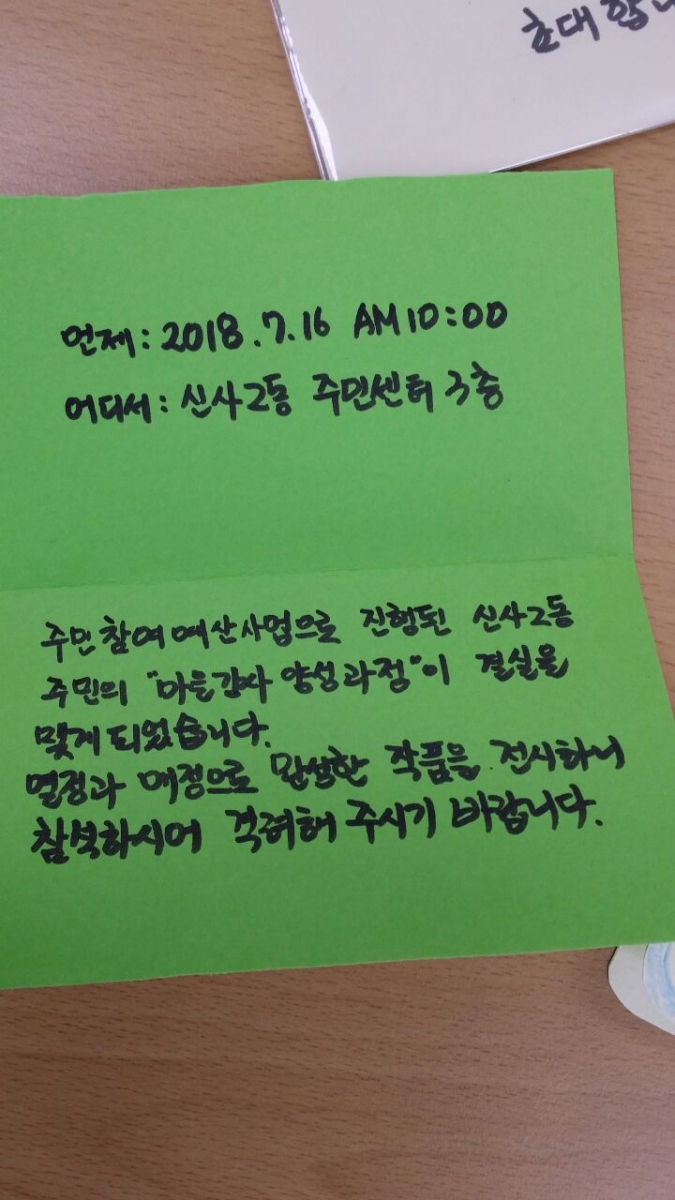 초대합니
언제: 2018.7.16 AM 10:00
어디서: 신사2동 주민센터 3층
주민참여예산사업으로 진행된 신사2동
주민의 "마을강사 양성과정"이 결실을
맺게되었습니다.
열정과 애정으로 완성한 작품을 전시하니
참석하시어 격려해 주시기 바랍니다.